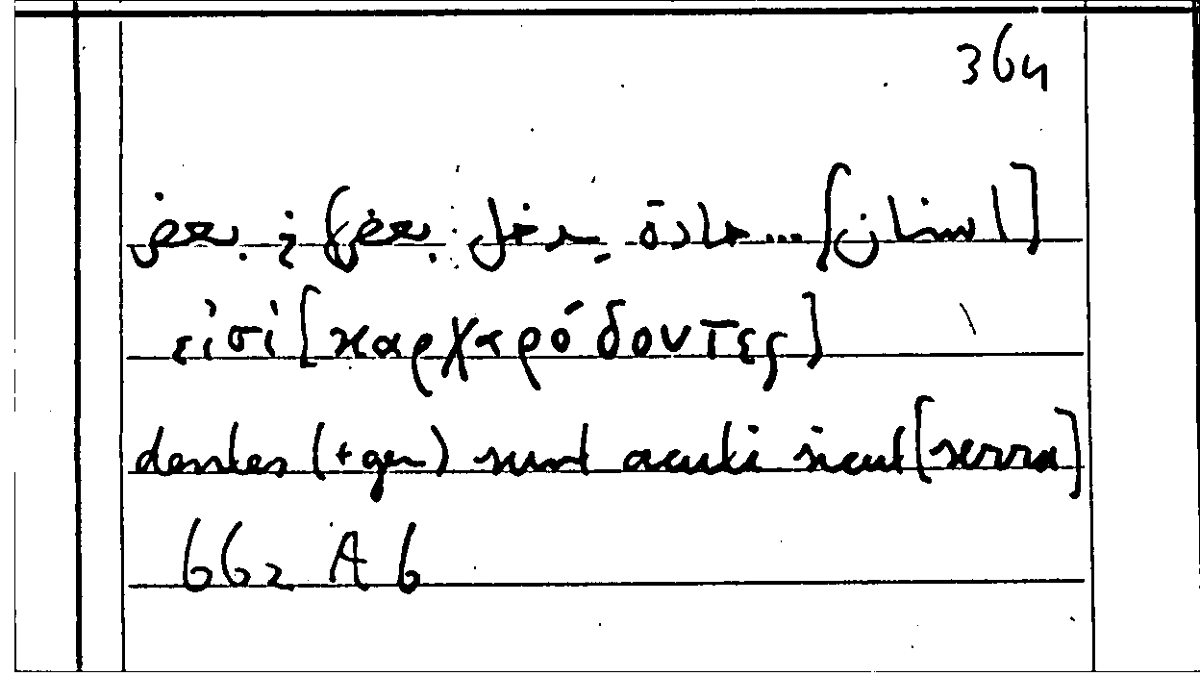 364
[اسنان] ... حادة يدخل بعضها في بعض
εἰσὶ [καρχαρόδοντες]
dentes (+gen) sunt acuti sicut [serra]
662 A 6